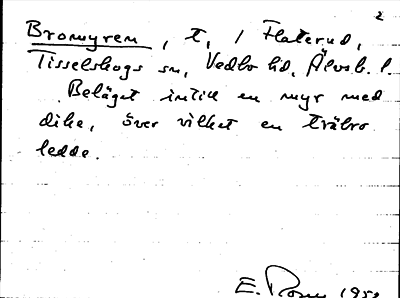 2
Bromyren, t, / Flaterud,
Tisselskogs sn, Vedbo hd, Älvsb. l.
Beläget intill en myr med
dike, över vilket en träbro
ledde.
E.